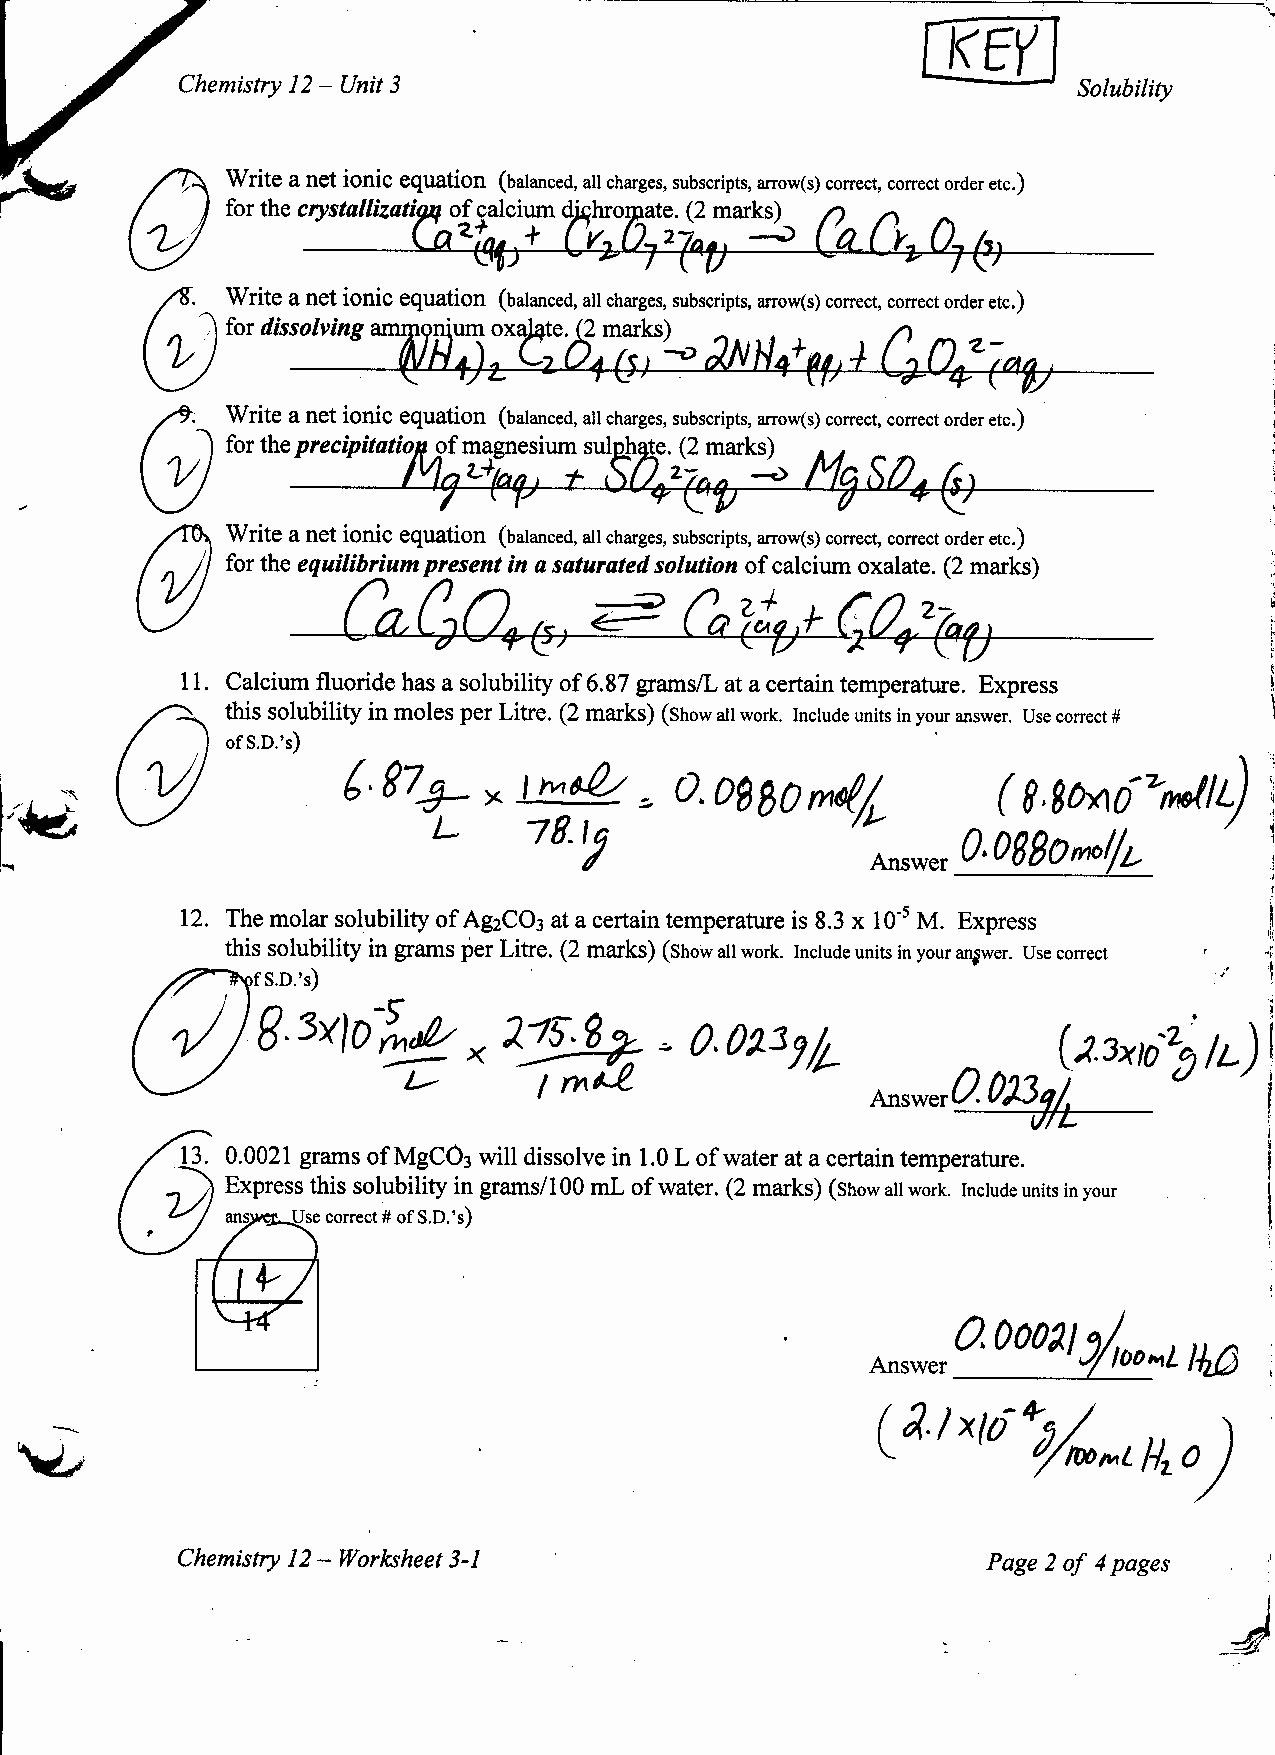 KEY
Chemistry 12 – Unit 3 Solubility
7. Write a net ionic equation (balanced, all charges, subscripts, arrow(s) correct, correct order etc.)
for the crystallization of calcium dichromate. (2 marks)
2 Ca²⁺(aq) + Cr₂O₇²⁻(aq) → CaCr₂O₇(s)
8. Write a net ionic equation (balanced, all charges, subscripts, arrow(s) correct, correct order etc.)
for dissolving ammonium oxalate. (2 marks)
2 (NH₄)₂C₂O₄(s) → 2NH₄⁺(aq) + C₂O₄²⁻(aq)
9. Write a net ionic equation (balanced, all charges, subscripts, arrow(s) correct, correct order etc.)
for the precipitation of magnesium sulphate. (2 marks)
2 Mg²⁺(aq) + SO₄²⁻(aq) → MgSO₄(s)
10. Write a net ionic equation (balanced, all charges, subscripts, arrow(s) correct, correct order etc.)
for the equilibrium present in a saturated solution of calcium oxalate. (2 marks)
2 CaC₂O₄(s) ⇌ Ca²⁺(aq) + C₂O₄²⁻(aq)
11. Calcium fluoride has a solubility of 6.87 grams/L at a certain temperature. Express
this solubility in moles per Litre. (2 marks) (Show all work. Include units in your answer. Use correct #
of S.D.'s)
2 6.87g x 1 mol = 0.0880 mol/L (8.80x10⁻² mol/L)
L 78.1g
Answer 0.0880 mol/L
12. The molar solubility of Ag₂CO₃ at a certain temperature is 8.3 x 10⁻⁵ M. Express
this solubility in grams per Litre. (2 marks) (Show all work. Include units in your answer. Use correct
# of S.D.'s)
2 8.3x10⁻⁵ mol x 275.8g = 0.023g/L (2.3x10⁻² g/L)
L 1 mol
Answer 0.023g/L
13. 0.0021 grams of MgCO₃ will dissolve in 1.0 L of water at a certain temperature.
2 Express this solubility in grams/100 mL of water. (2 marks) (Show all work. Include units in your
answer. Use correct # of S.D.'s)
14
14
Answer 0.00021 g/100mL H₂O
(2.1x10⁻⁴ g/100mL H₂O)
Chemistry 12 – Worksheet 3-1 Page 2 of 4 pages